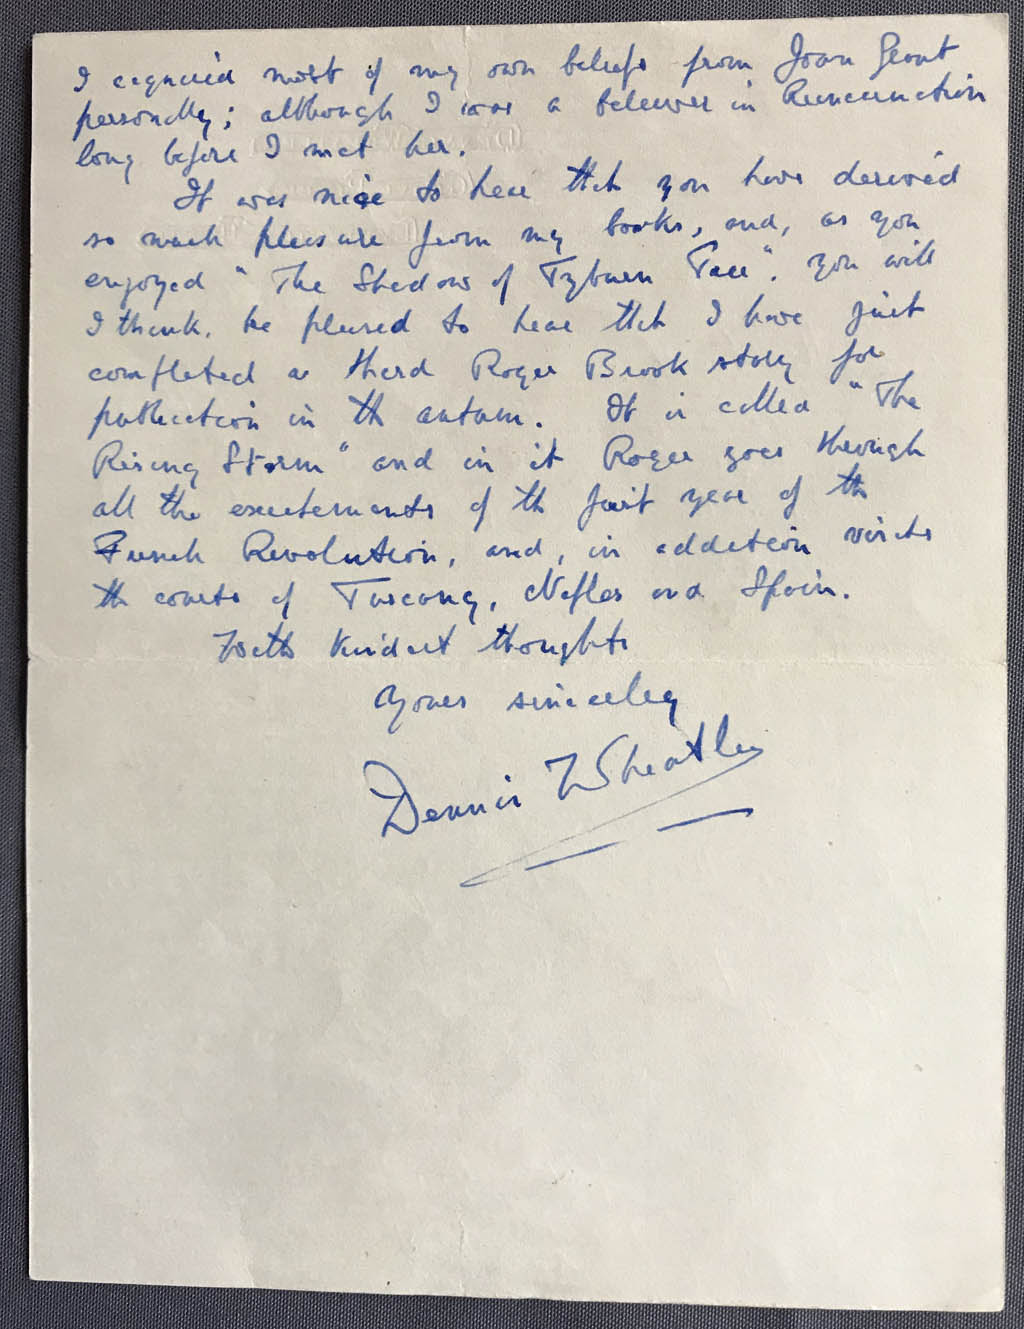 I acquired most of my own beliefs from Joan Grant
personally; although I was a believer in Reincarnation
long before I met her.
It was nice to hear that you have derived
so much pleasure from my books, and, as you
enjoyed "The Shadow of Tyburn Tree". you will
I think, be pleased to hear that I have just
completed a third Roger Brook story for
publication in the autumn. It is called "The
Rising Storm" and in it Roger goes through
all the excitements of the first year of the
French Revolution, and, in addition visits
the courts of Tuscany, Naples and Spain.
With kindest thoughts
Yours sincerely
Dennis Wheatley